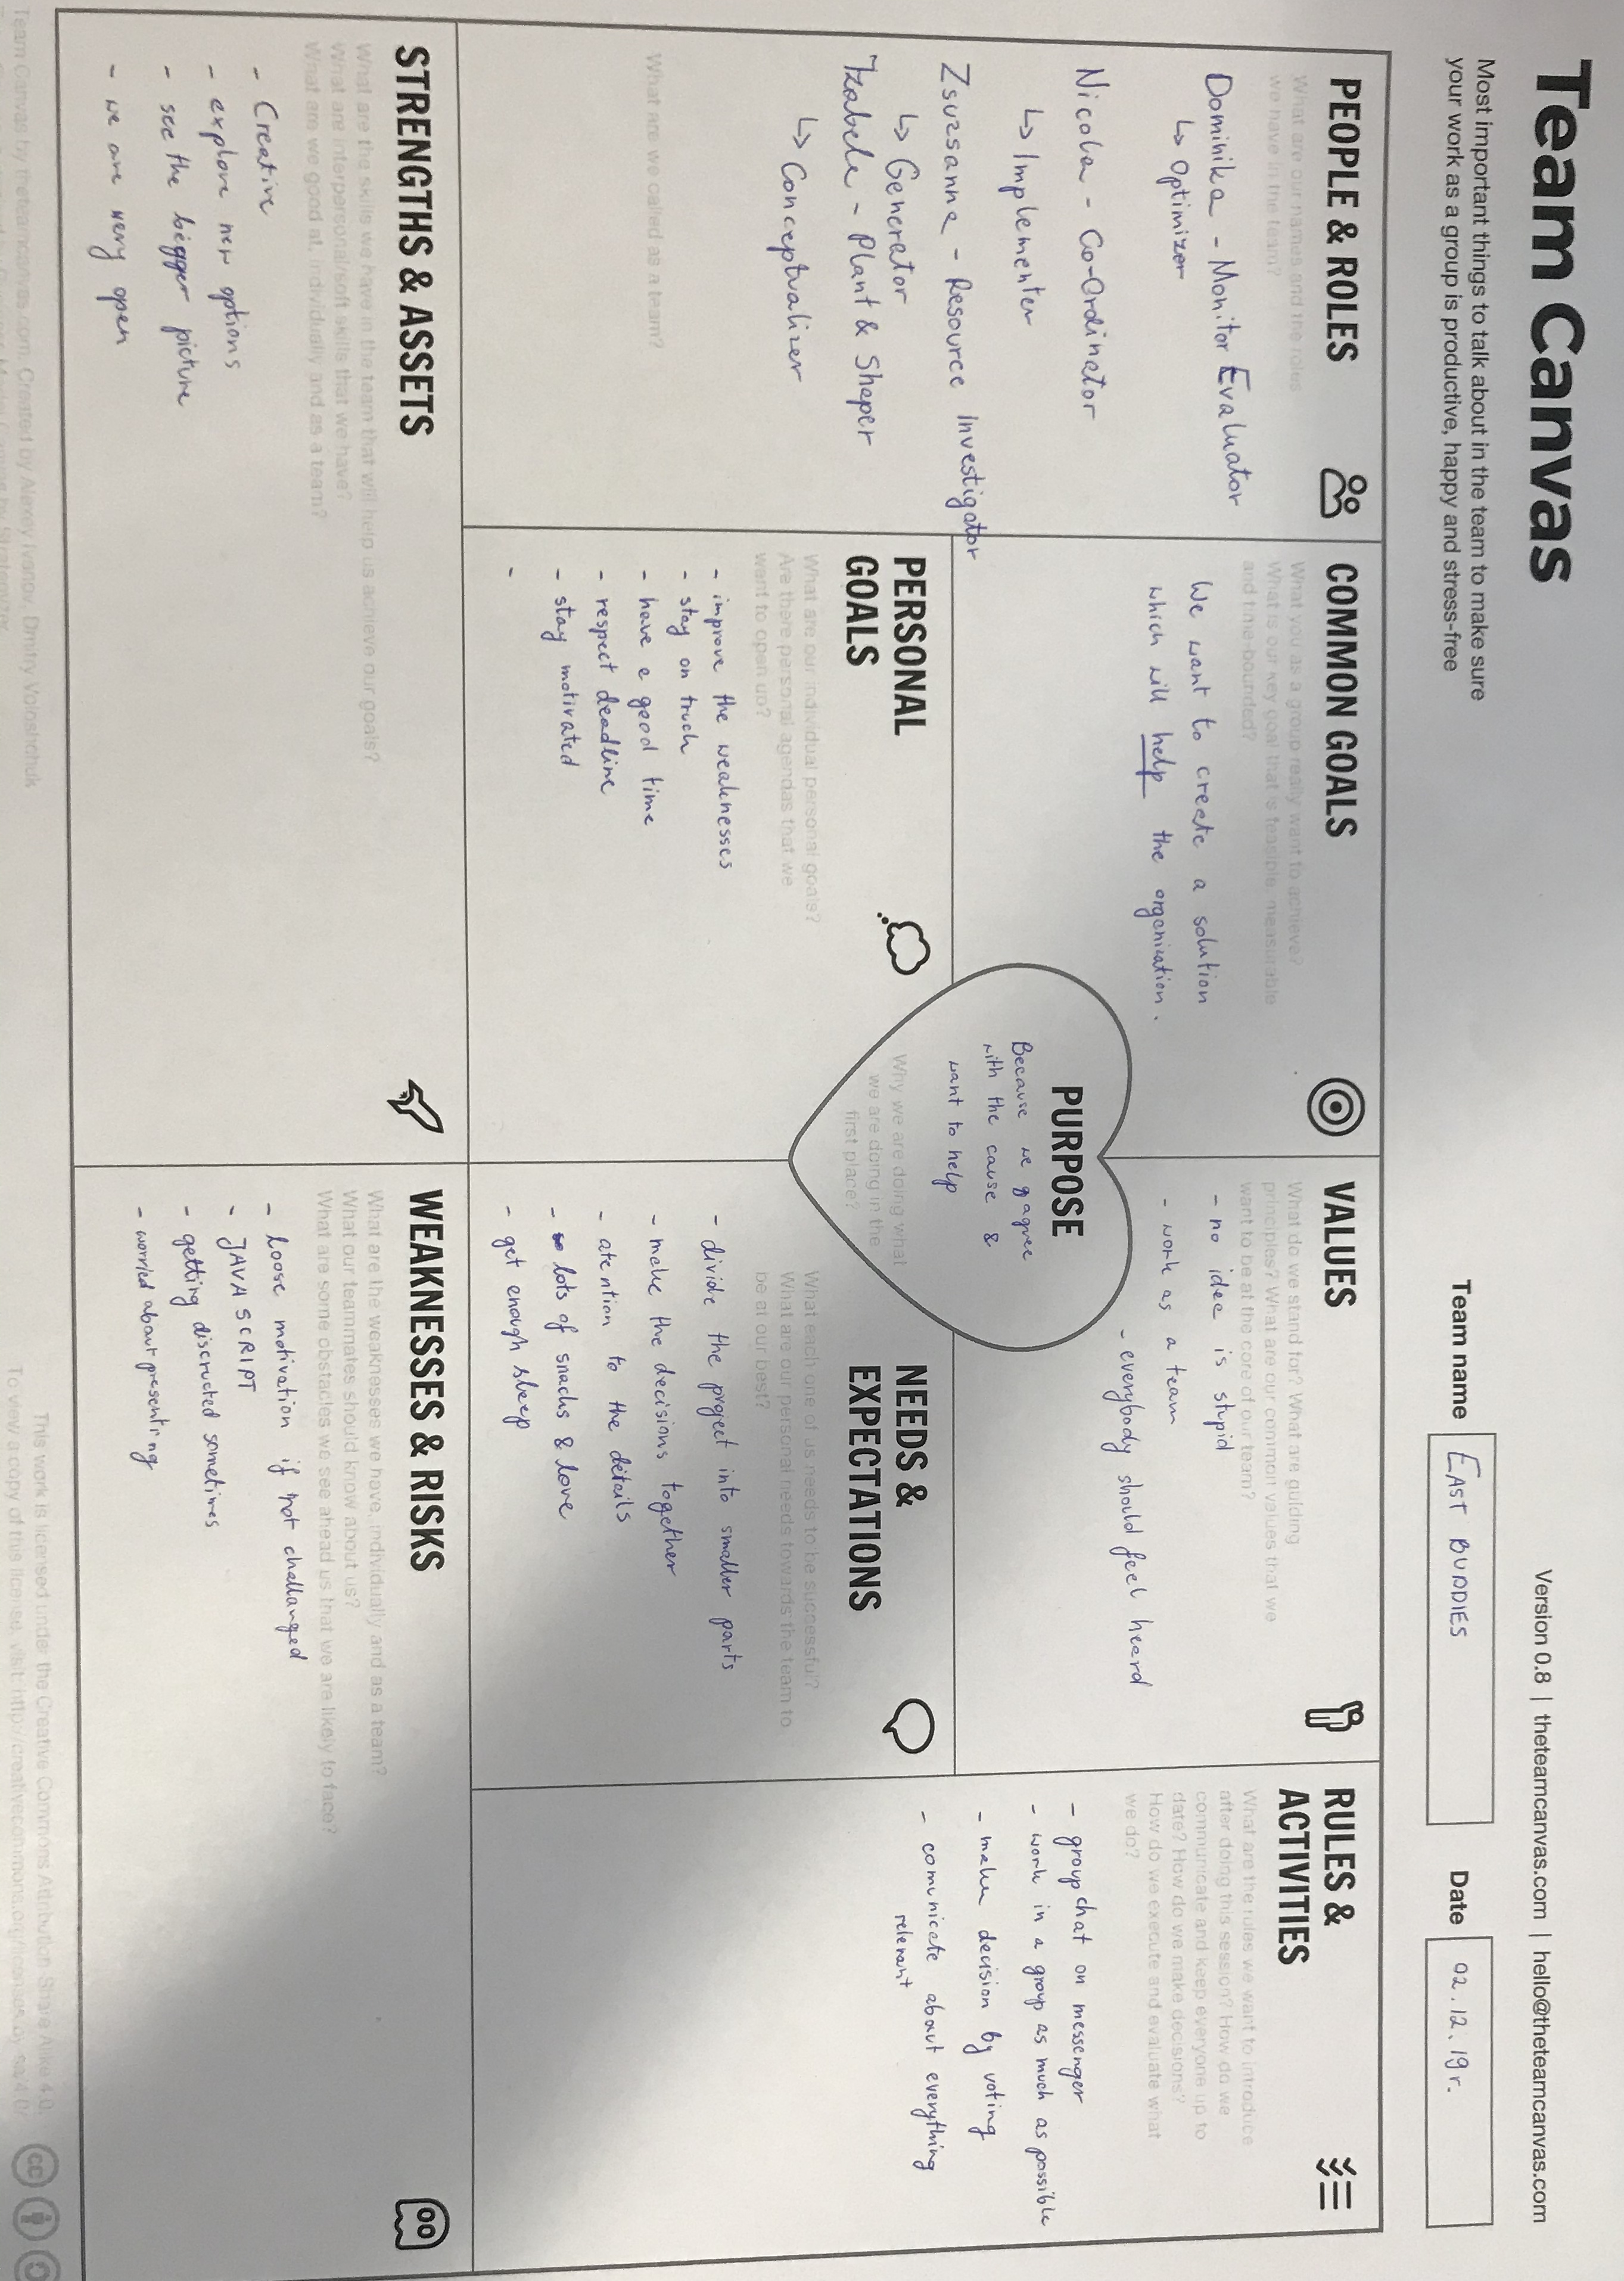 Team Canvas
Most important things to talk about in the team to make sure
your work as a group is productive, happy and stress-free
Version 0.8 | theteamcanvas.com | hello@theteamcanvas.com
Team name
EAST BUDDIES
Date
02.12.19r.
PEOPLE & ROLES
What are our names and the roles
we have in the team?
Dominika - Monitor Evaluator
↳ Optimizer
Nicola - Co-Ordinator
↳ Implementer
Zsuzsanna - Resource Investigator
↳ Generator
Izabela - Plant & Shaper
↳ Conceptualizer
What are we called as a team?
COMMON GOALS
What you as a group really want to achieve?
What is our key goal that is feasible, measurable
and time-bounded?
We want to create a solution
which will help the organization.
VALUES
What do we stand for? What are guiding
principles? What are our common values that we
want to be at the core of our team?
- no idea is stupid
- work as a team
- everybody should feel heard
RULES &
ACTIVITIES
What are the rules we want to introduce
after doing this session? How do we
communicate and keep everyone up to
date? How do we make decisions?
How do we execute and evaluate what
we do?
- group chat on messenger
- work in a group as much as possible
- make decision by voting
- comunicate about everything
relevant
PURPOSE
Because we agree
with the cause &
want to help
Why we are doing what
we are doing in the
first place?
PERSONAL
GOALS
What are our individual personal goals?
Are there personal agendas that we
want to open up?
- improve the weaknesses
- stay on truck
- have a good time
- respect deadline
- stay motivated
-
NEEDS &
EXPECTATIONS
What each one of us needs to be successful?
What are our personal needs towards the team to
be at our best?
- divide the project into smaller parts
- make the decisions together
- atention to the details
- lots of snacks & love
- get enough sleep
STRENGTHS & ASSETS
What are the skills we have in the team that will help us achieve our goals?
What are interpersonal/soft skills that we have?
What are we good at, individually and as a team?
- Creative
- explore new options
- see the bigger picture
- we are very open
WEAKNESSES & RISKS
What are the weaknesses we have, individually and as a team?
What our teammates should know about us?
What are some obstacles we see ahead us that we are likely to face?
- loose motivation if not challanged
- JAVA SCRIPT
- getting discructed sometimes
- worried about presenting
Team Canvas by theteamcanvas.com. Created by Alexey Ivanov, Dmitry Voloshchuk
This work is licensed under the Creative Commons Attribution Share Alike 4.0.
To view a copy of the license, visit: http://creativecommons.org/licenses/by-sa/4.0/